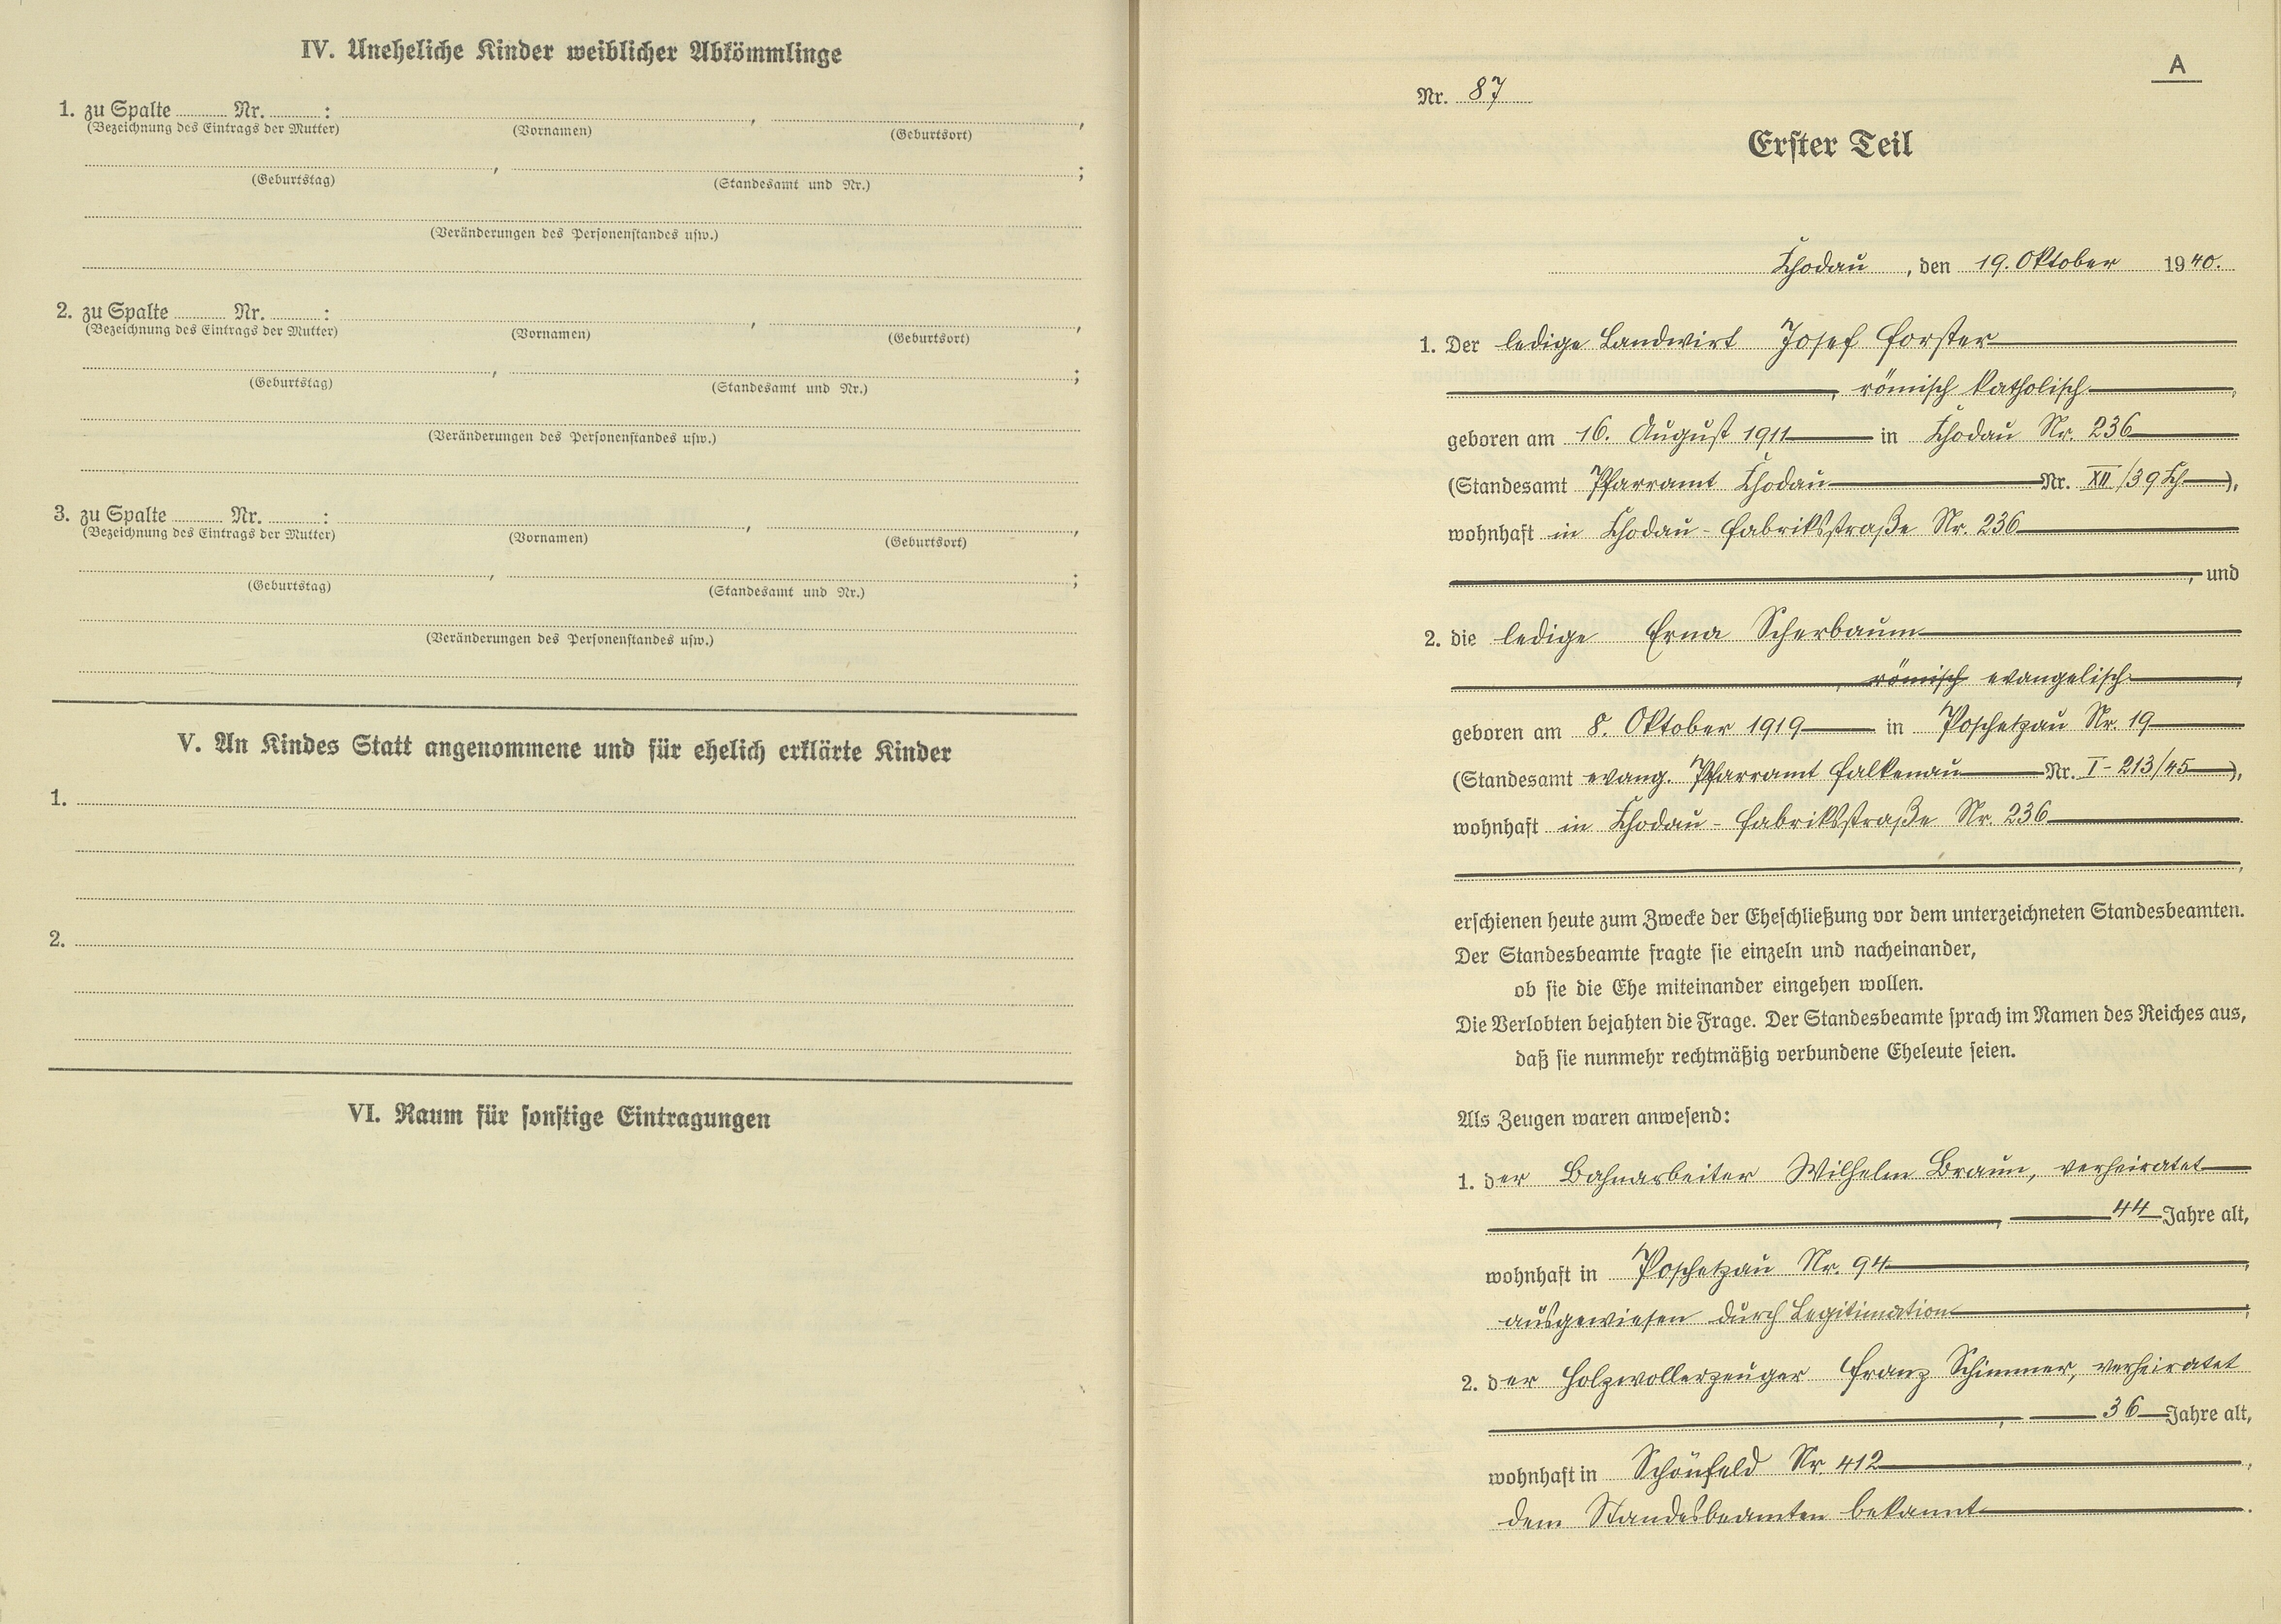 IV. Uneheliche Kinder weiblicher Abkömmlinge
1. zu Spalte ........ Nr. ........ : , ,
(Bezeichnung des Eintrags der Mutter) (Vornamen) (Geburtsort)
, ;
(Geburtstag) (Standesamt und Nr.)
(Veränderungen des Personenstandes usw.)
2. zu Spalte ........ Nr. ........ : , ,
(Bezeichnung des Eintrags der Mutter) (Vornamen) (Geburtsort)
, ;
(Geburtstag) (Standesamt und Nr.)
(Veränderungen des Personenstandes usw.)
3. zu Spalte ........ Nr. ........ : , ,
(Bezeichnung des Eintrags der Mutter) (Vornamen) (Geburtsort)
, ;
(Geburtstag) (Standesamt und Nr.)
(Veränderungen des Personenstandes usw.)
V. An Kindes Statt angenommene und für ehelich erklärte Kinder
1.
2.
VI. Raum für sonstige Eintragungen
A
Nr. 87
Erster Teil
Chodau, den 19. Oktober 1940.
1. Der ledige Landwirt Josef Forster
, römisch katholisch,
geboren am 16. August 1911 in Chodau Nr. 236
(Standesamt Pfarramt Chodau Nr. XII/39 Ch),
wohnhaft in Chodau - Fabriksstraße Nr. 236
, und
2. die ledige Erna Scherbaum
, römisch evangelisch,
geboren am 8. Oktober 1919 in Poschetzau Nr. 19
(Standesamt evang. Pfarramt Falkenau Nr. I-213/45),
wohnhaft in Chodau - Fabriksstraße Nr. 236
,
erschienen heute zum Zwecke der Eheschließung vor dem unterzeichneten Standesbeamten.
Der Standesbeamte fragte sie einzeln und nacheinander,
ob sie die Ehe miteinander eingehen wollen.
Die Verlobten bejahten die Frage. Der Standesbeamte sprach im Namen des Reiches aus,
daß sie nunmehr rechtmäßig verbundene Eheleute seien.
Als Zeugen waren anwesend:
1. der Bahnarbeiter Wilhelm Braun, verheiratet
, 44 Jahre alt,
wohnhaft in Poschetzau Nr. 94,
ausgewiesen durch Legitimation;
2. der Holzwollerzeuger Franz Schimmer, verheiratet
, 36 Jahre alt,
wohnhaft in Schönfeld Nr. 412,
dem Standesbeamten bekannt.